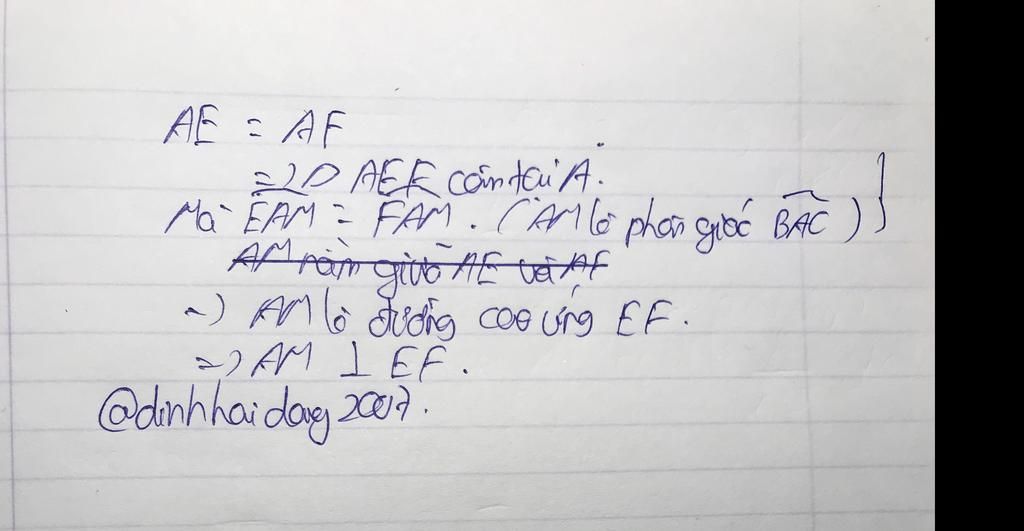 AE = AF
=> Δ AEF cân tại A.
Mà EAM = FAM. (AM là phân giác BAC) }
AM nằm giữa AE và AF
=> AM là đường cao ứng EF.
=> AM ⊥ EF.
@dinhhaidang2007.